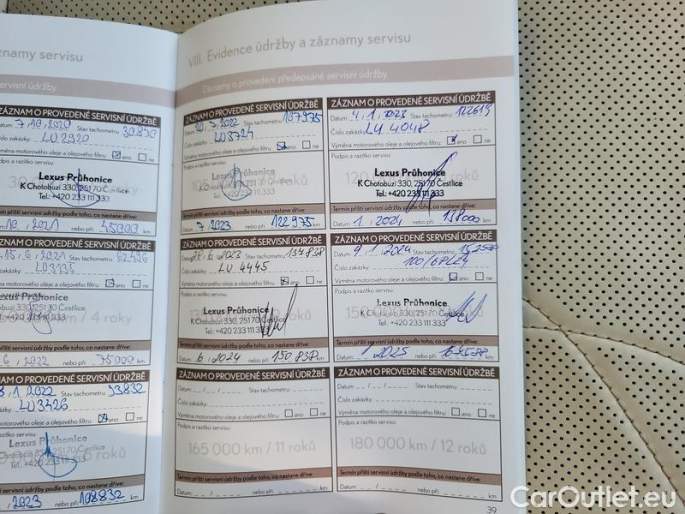 znamy servisu
servisní údržby
ZÁZNAM O PROVEDENÉ SERVISNÍ ÚDRŽBĚ
7.10.2020 Stav tachometru 30850
LU2920
Výměna motorového oleje a olejového filtru ano ne
Lexus Průhonice
K Chotobuzi 330, 251 70 Čestlice
Tel.: +420 233 111 333
Termín příští servisní údržby podle toho, co nastane dříve:
10.2021 nebo při 45000 km
ZÁZNAM O PROVEDENÉ SERVISNÍ ÚDRŽBĚ
Lexus Průhonice
4 roky
6.2022 nebo při 75000 km
ZÁZNAM O PROVEDENÉ SERVISNÍ ÚDRŽBĚ
1.2022 Stav tachometru 93832
LU3426
Lexus Průhonice
2023 nebo při 108832 km
VIII. Evidence údržby a záznamy servisu
Záznamy o provedení předepsané servisní údržby
ZÁZNAM O PROVEDENÉ SERVISNÍ ÚDRŽBĚ
Stav tachometru 107975
Číslo zakázky LU3724
Výměna motorového oleje a olejového filtru ano ne
Podpis a razítko servisu
Lexus Průhonice
Termín příští servisní údržby podle toho, co nastane dříve:
Datum 7.2023 nebo při 122975 km
ZÁZNAM O PROVEDENÉ SERVISNÍ ÚDRŽBĚ
Datum 4.1.2023 Stav tachometru 122613
Číslo zakázky LU 4048
Výměna motorového oleje a olejového filtru ano ne
Podpis a razítko servisu
Lexus Průhonice
K Chotobuzi 330, 251 70 Čestlice
Tel.: +420 233 111 333
Termín příští servisní údržby podle toho, co nastane dříve:
Datum 1.2024 nebo při 138000 km
ZÁZNAM O PROVEDENÉ SERVISNÍ ÚDRŽBĚ
Číslo zakázky LU 4445
Výměna motorového oleje a olejového filtru ano ne
Podpis a razítko servisu
Lexus Průhonice
K Chotobuzi 330, 251 70 Čestlice
Tel.: +420 233 111 333
Termín příští servisní údržby podle toho, co nastane dříve:
Datum 6.2024 nebo při km
ZÁZNAM O PROVEDENÉ SERVISNÍ ÚDRŽBĚ
Datum 9.1.2024 Stav tachometru
Číslo zakázky
Výměna motorového oleje a olejového filtru ano ne
Podpis a razítko servisu
Lexus Průhonice
K Chotobuzi 330, 251 70 Čestlice
Tel.: +420 233 111 333
Termín příští servisní údržby podle toho, co nastane dříve:
Datum 1.2025 nebo při km
ZÁZNAM O PROVEDENÉ SERVISNÍ ÚDRŽBĚ
Datum Stav tachometru km
Číslo zakázky
Výměna motorového oleje a olejového filtru ano ne
Podpis a razítko servisu
165 000 km / 11 roků
Termín příští servisní údržby podle toho, co nastane dříve:
Datum nebo při km
ZÁZNAM O PROVEDENÉ SERVISNÍ ÚDRŽBĚ
Datum Stav tachometru km
Číslo zakázky
Výměna motorového oleje a olejového filtru ano ne
Podpis a razítko servisu
180 000 km / 12 roků
Termín příští servisní údržby podle toho, co nastane dříve:
Datum nebo při km
39
CarOutlet.eu